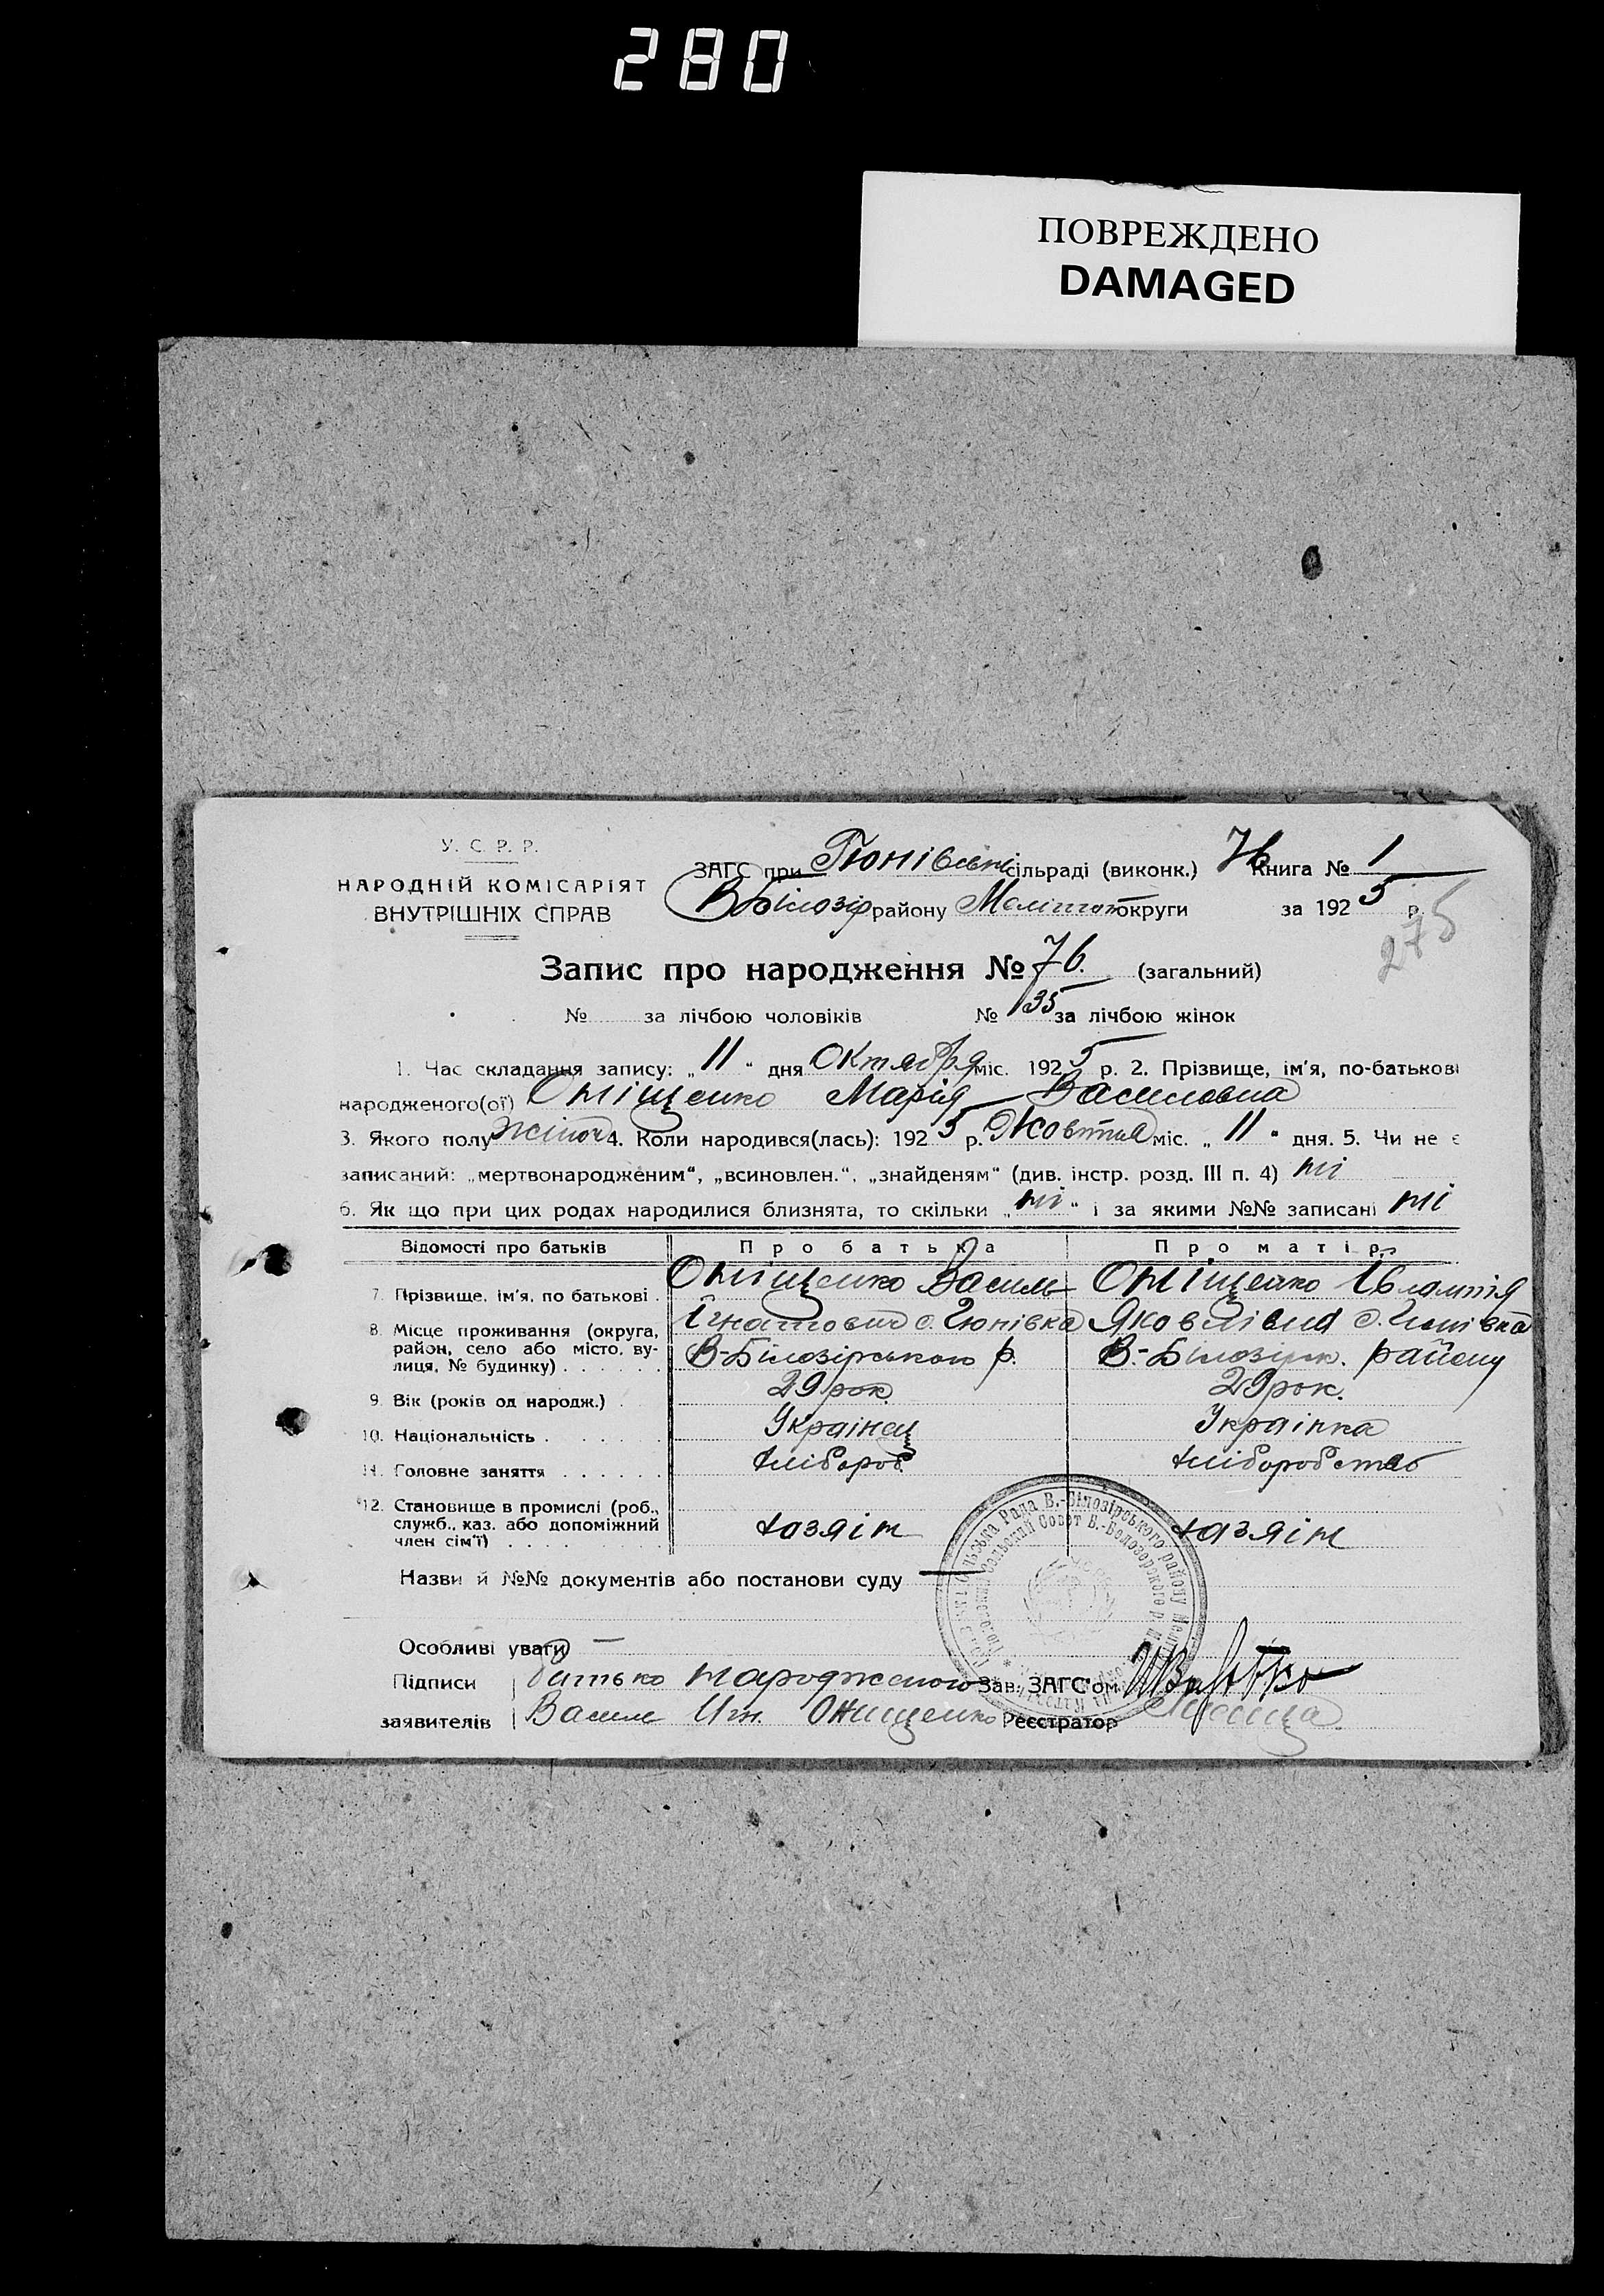 280
ПОВРЕЖДЕНО
DAMAGED
У. С. Р. Р.
НАРОДНІЙ КОМІСАРІЯТ
ВНУТРІШНІХ СПРАВ
ЗАГС при Гюнівськ сільраді (виконк.) 76 Книга № 1
В Білозір району Меліттоп округи за 1925 р.
275
Запис про народження № 76. (загальний)
№ за лічбою чоловіків № 35 за лічбою жінок
1. Час складання запису: „11“ дня Октября міс. 1925 р. 2. Прізвище, ім'я, по-батькові
народженого(ої) Оніщенко Марія Василовна
3. Якого полу жіноч 4. Коли народився(лась): 1925 р. Жовтня міс. „11“ дня. 5. Чи не є
записаний: „мертвонародженим“, „всиновлен.“, „знайденям“ (див. інстр. розд. III п. 4) ні
6. Як що при цих родах народилися близнята, то скільки „ні“ і за якими №№ записані ні
Відомості про батьків Про батька Про матір
7. Прізвище, ім'я, по батькові . Оніщенко Василь Оніщенко Євлампія
Ігнатович с. Гюнівка Яковлівна с. Гюнівка
8. Місце проживання (округа,
район, село або місто, ву-
лиця, № будинку) . . . . В-Білозірського р. В.-Білозірк. району
9. Вік (років од народж.) . 29 рок. 29 рок.
10. Національність . . . . . Українец Українка
11. Головне заняття . . . . . . хлібороб. хліборобство
12. Становище в промислі (роб.,
служб., хаз. або допоміжний
член сім'ї) . . . . хазяін хазяін
Назви й №№ документів або постанови суду —
Особливі уваги —
Підписи батько народженого Зав. ЗАГС'ом
заявителів Василь Игн. Онищенко Реєстратор
Рада В.-Білозірського району
Совет В.-Белозерского р.